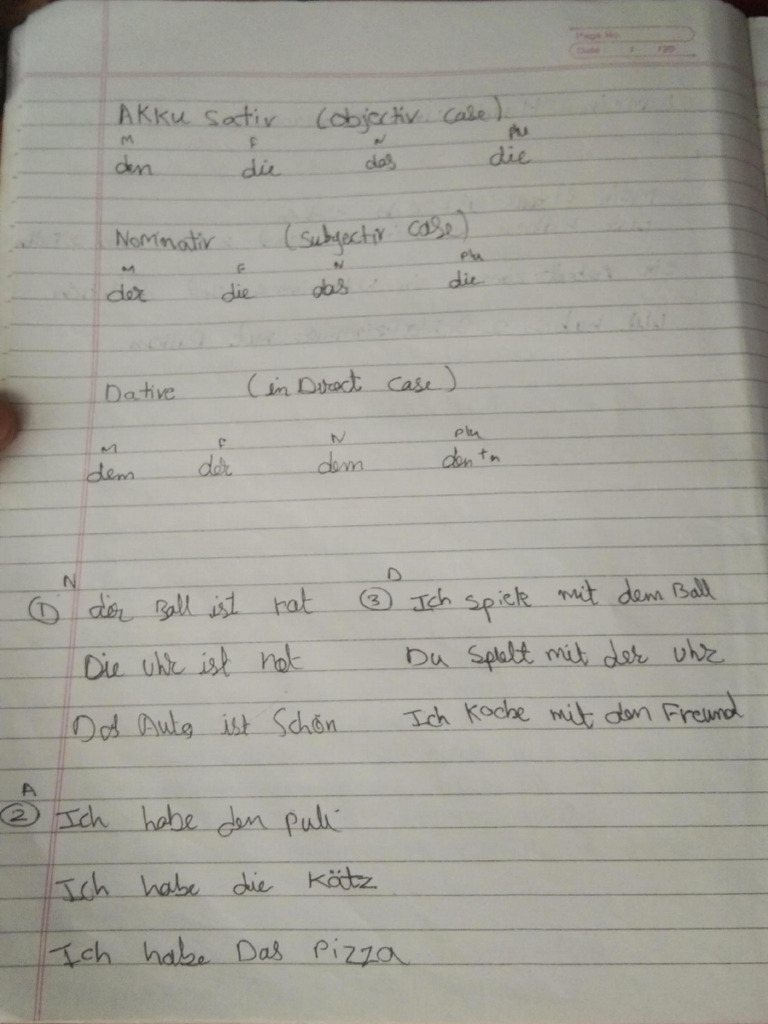 Page No
Date / /20
AKKU Sativ (objectiv case)
M F N Plu
den die das die
Nominativ (Subjectiv Case)
M F N Plu
der die das die
Dative (in Direct Case)
M F N Plu
dem der dem den +n
N D
① der Ball ist rat ③ Ich spiele mit dem Ball
Die Uhr ist rot Du Spielt mit der Uhr
Das Auto ist Schön Ich Koche mit den Freund
A
② Ich habe den puli
Ich habe die Kätz
Ich habe Das Pizza